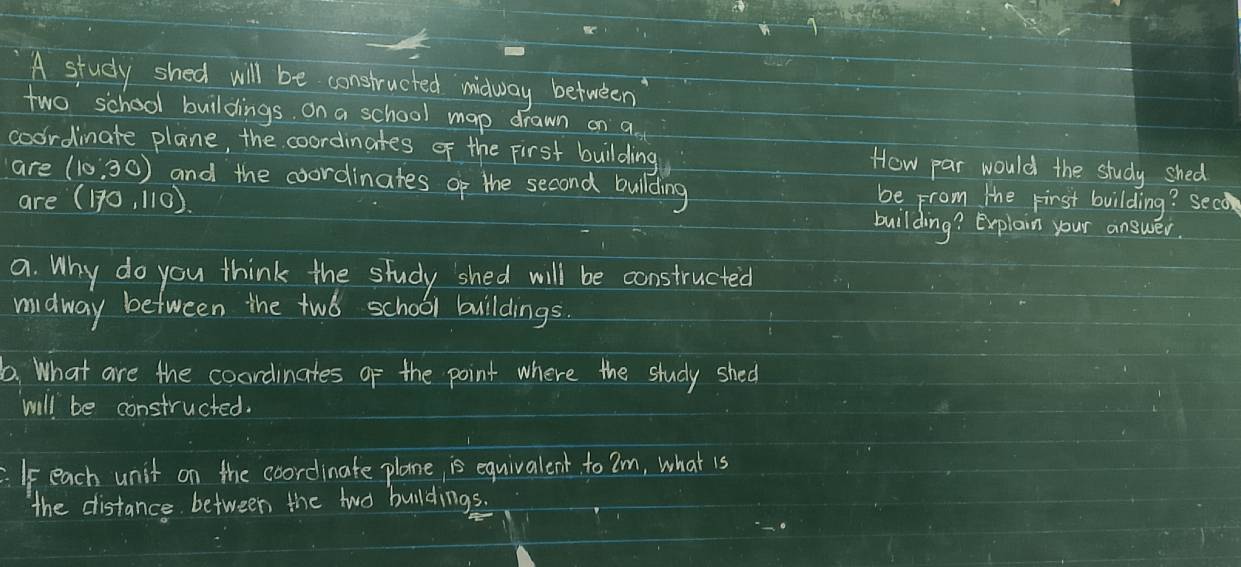 A study shed will be constructed midway between
two school buildings. On a school map drawn on a
coordinate plane, the coordinates of the first building
are (10,30) and the coordinates of the second building
are (170,110).
a. Why do you think the study shed will be constructed
midway between the two school buildings.
b. What are the coordinates of the point where the study shed
will be constructed.
c. If each unit on the coordinate plane is equivalent to 2m, what is
the distance between the two buildings.
How par would the study shed
be from the first building?
building? Explain your answer.